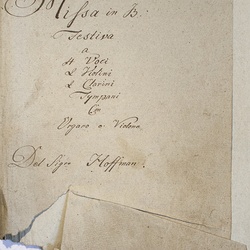 Missa in B.
Festiva
a
4 Voci
2 Violini
2 Clarini
Tympani
Con
Organo e Violone
Del Sigre Hoffman.